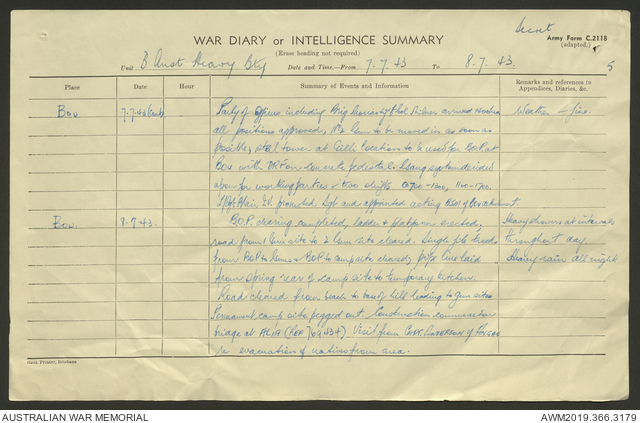 Secret
WAR DIARY or INTELLIGENCE SUMMARY
Army Form C.2118
(adapted.)
(Erase heading not required)
5
Unit B Aust Heavy Bty Date and Time.—From 7.7.43 To 8.7.43.
Place Date Hour Summary of Events and Information Remarks and references to Appendices, Diaries, &c.
Bou 7.7.43 Party of officers including Brig & Col arrived Weather - fine.
all positions approved, No 2 Gun to be moved in as soon as
possible, steel tower at locations to be used for BOP at
Bou with DRF on concrete pedestal.
for working parties shifts 0700-1200, 1100-1700.
promoted Sgt and appointed acting BSM of detachment.
Bou. 8.7.43. B.O.P. clearing completed, ladder & platform erected, Heavy showers at intervals
road from Gun site to 2 Gun site cleared. Single tracks throughout day.
from BOP to Guns & BOP to camp site cleared, pipe line laid Heavy rain all night
from spring rear of camp site to temporary kitchen.
Road cleared from beach to base of hill leading to gun sites
Permanent camp site pegged out. Construction commenced on
bridge at ALIA (REF 769434). Visit from Capt. ANDERSON of ANGAU
re evacuation of natives from area.
Govt. Printer, Brisbane
AUSTRALIAN WAR MEMORIAL
AWM2019.366.3179